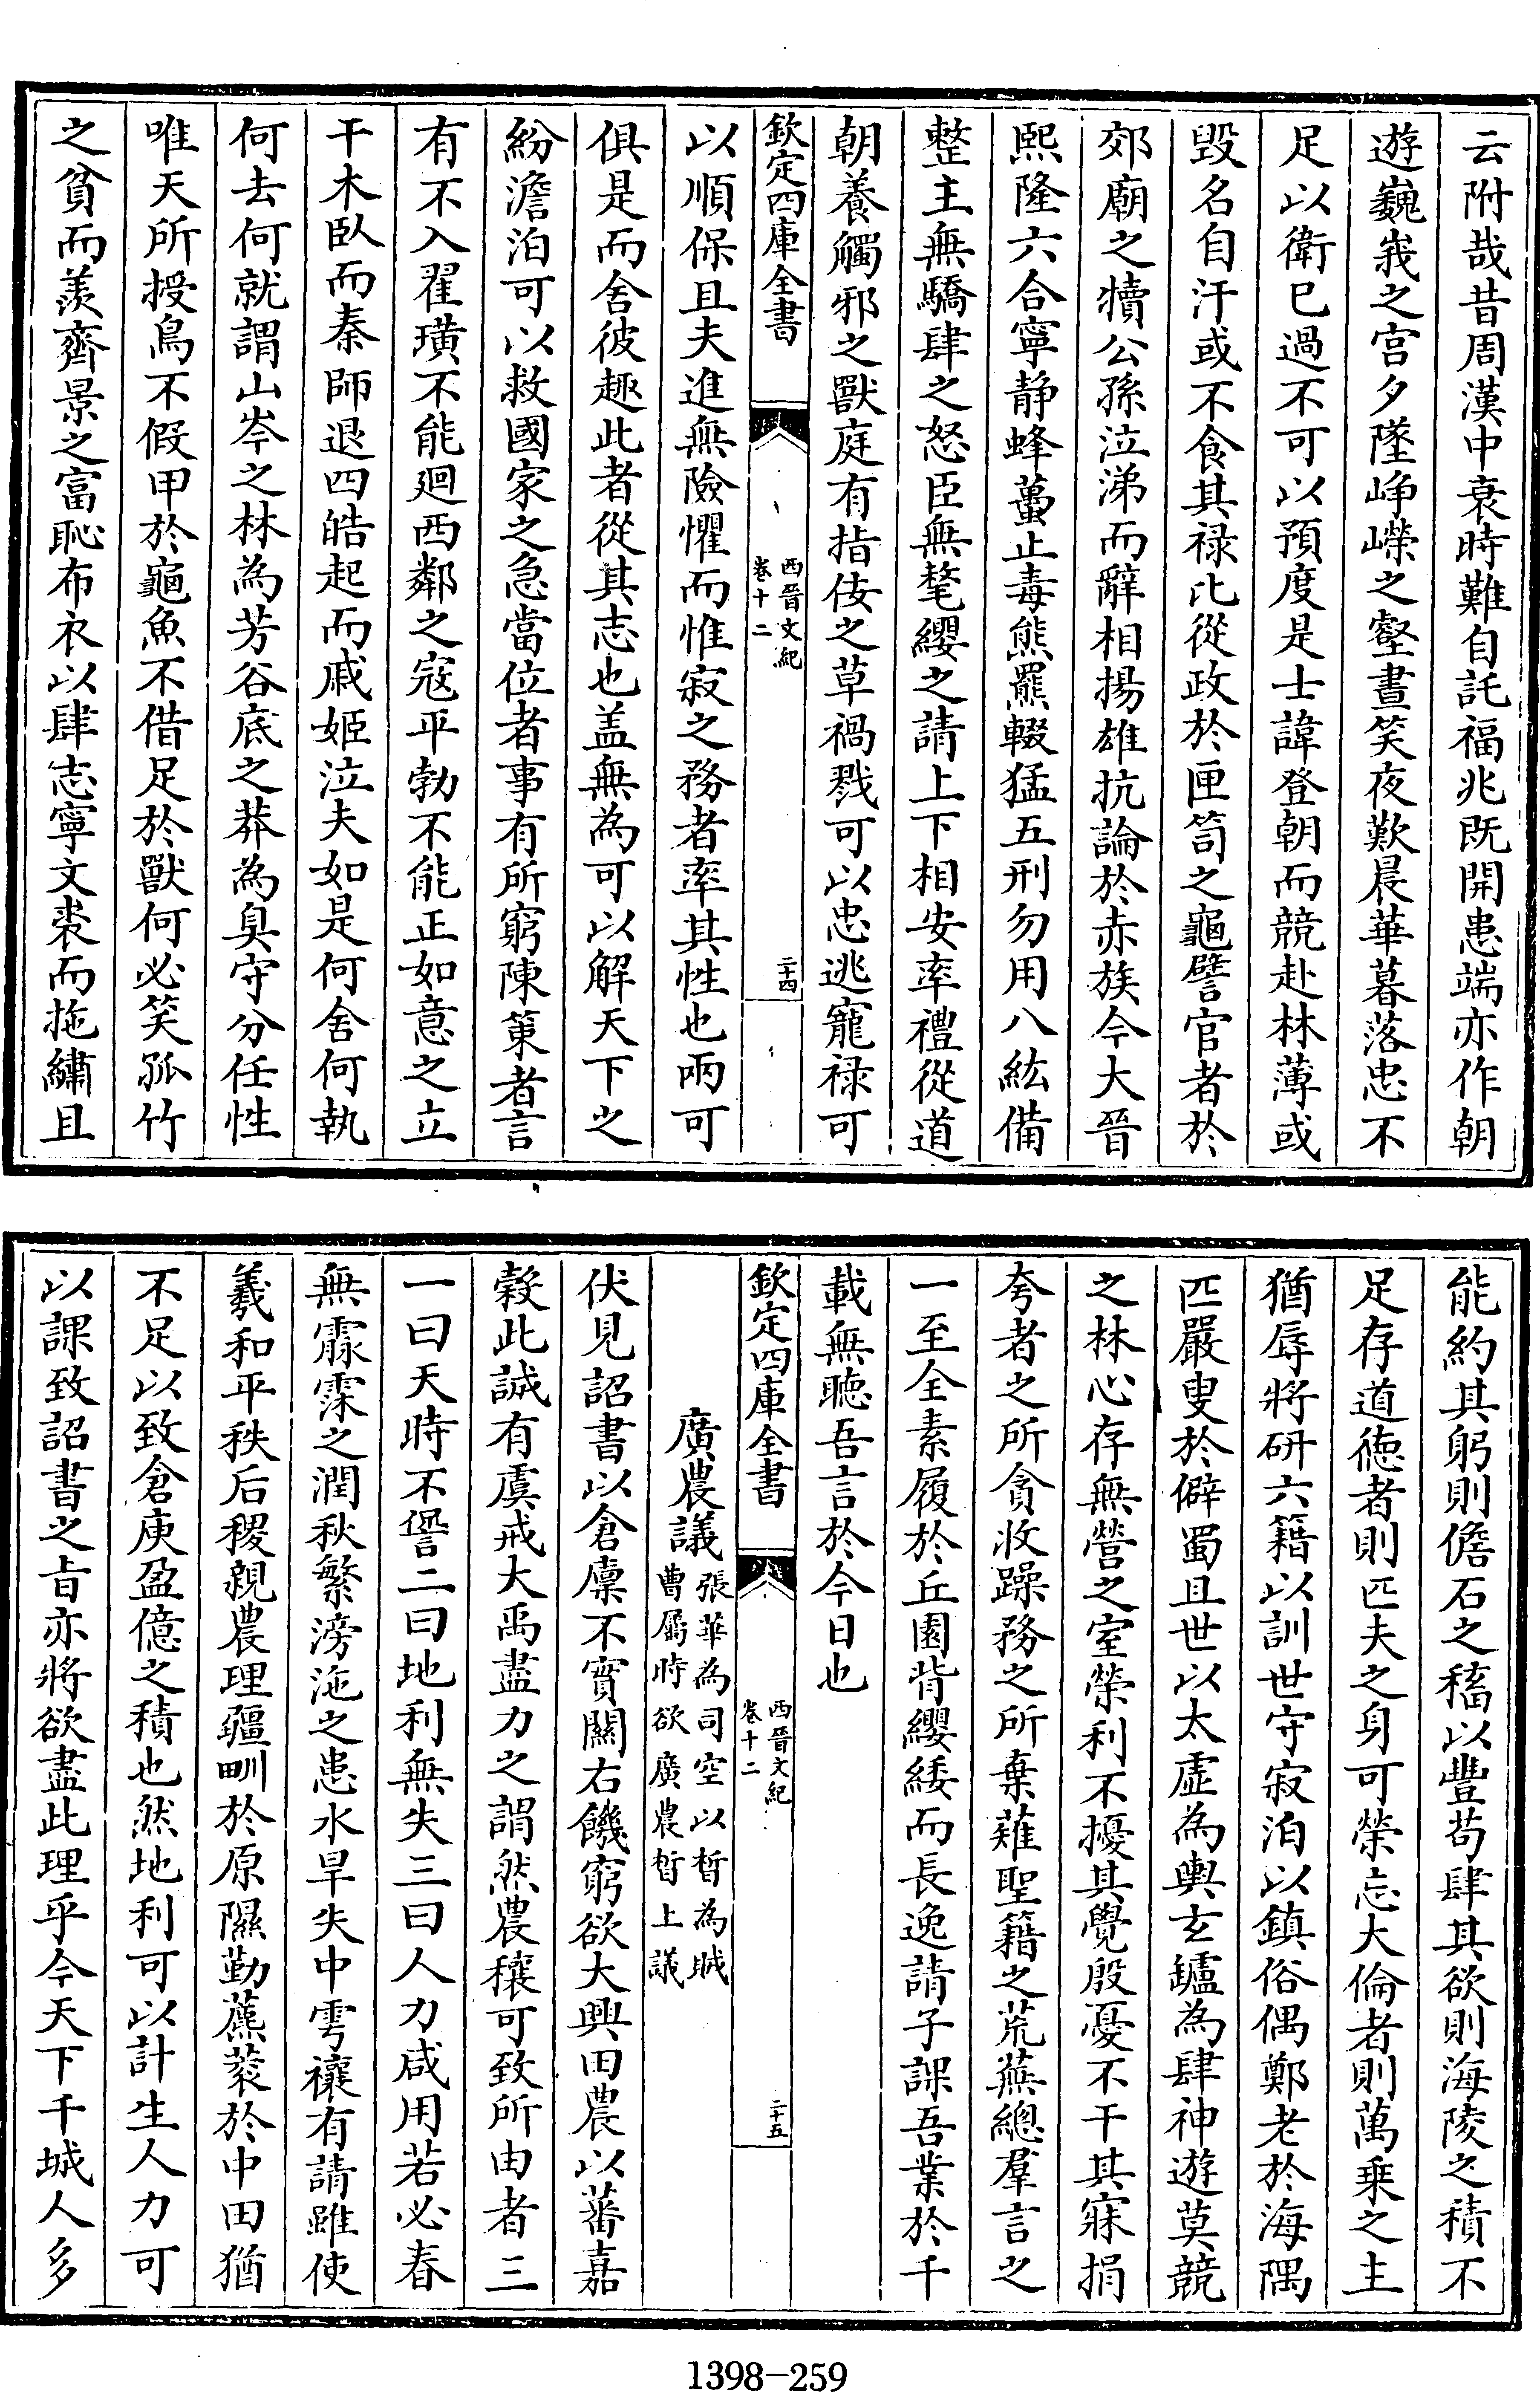 云附哉昔周漢中衰時難自託福兆既開患端亦作朝
遊巍峩之宫夕墜崢嶸之壑晝笑夜歎晨華暮落忠不
足以衛已過不可以預度是士諱登朝而競赴林薄或
毀名自汙或不食其禄比從政於匣笥之龜譬官者於
郊廟之犢公孫泣涕而辭相揚雄抗論於赤族今大晉
熙隆六合寧静蜂蠆止毒熊羆輟猛五刑勿用八紘備
整主無驕肆之怒臣無氂纓之請上下相安率禮從道
朝養觸邪之獸庭有指佞之草禍戮可以忠逃寵禄可
欽定四庫全書
西晉文紀
卷十二
二十四
以順保且夫進無險懼而惟寂之務者率其性也兩可
俱是而舍彼趣此者從其志也盖無為可以解天下之
紛澹泊可以救國家之急當位者事有所窮陳策者言
有不入翟璜不能廻西鄰之寇平勃不能正如意之立
干木臥而秦師退四皓起而戚姬泣夫如是何舍何執
何去何就謂山岑之林為芳谷底之莽為臭守分任性
唯天所授鳥不假甲於龜魚不借足於獸何必笑孤竹
之貧而羨齊景之富恥布衣以肆志寧文裘而拖繡且
能約其躬則儋石之稸以豐苟肆其欲則海陵之積不
足存道徳者則匹夫之身可榮忘大倫者則萬乗之主
猶辱將研六籍以訓世守寂泊以鎮俗偶鄭老於海隅
匹嚴叟於僻蜀且世以太虛為輿玄鑪為肆神遊莫競
之林心存無營之室榮利不擾其覺殷憂不干其寐捐
夸者之所貪收躁務之所棄薙聖籍之荒蕪總羣言之
一至全素履於丘園背纓緌而長逸請子課吾業於千
載無聴吾言於今日也
欽定四庫全書
西晉文紀
卷十二
二十五
廣農議張華為司空以晳為賊
曹屬時欲廣農晳上議
伏見詔書以倉廩不實關右饑窮欲大興田農以蕃嘉
穀此誠有虞戒大禹盡力之謂然農穰可致所由者三
一曰天時不諐二曰地利無失三曰人力咸用若必春
無霡霂之潤秋繁滂沲之患水旱失中雩禳有請雖使
羲和平秩后稷親農理疆甽於原隰勤藨蔉於中田猶
不足以致倉庾盈億之積也然地利可以計生人力可
以課致詔書之㫖亦將欲盡此理乎今天下千城人多
1398-259